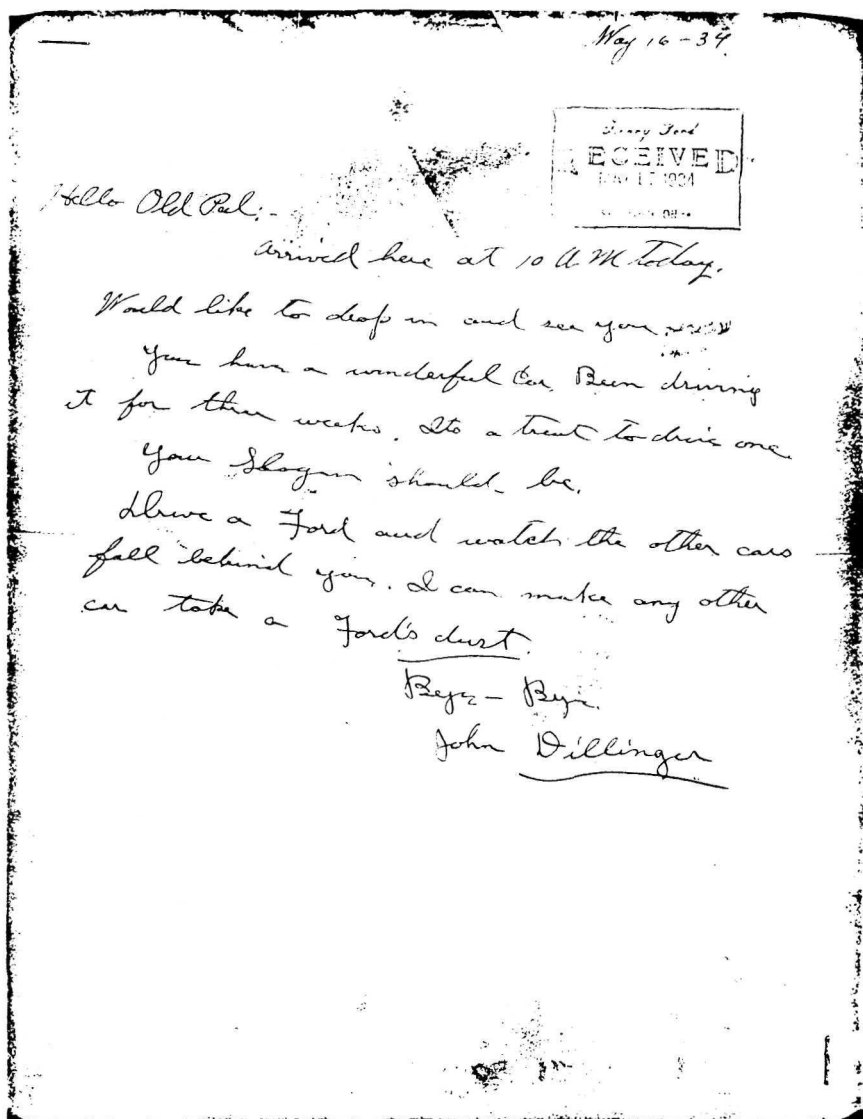 May 16-34.
Henry Ford
RECEIVED
MAY 17 1934
Hello Old Pal:-
arrived here at 10 A M today.
Would like to drop in and see you
You have a wonderful Car. Been driving
it for three weeks. Its a treat to drive one.
Your Slogan should be.
Drive a Ford and watch the other cars
fall behind you. I can make any other
car take a Ford's dust.
Bye - Bye.
John Dillinger